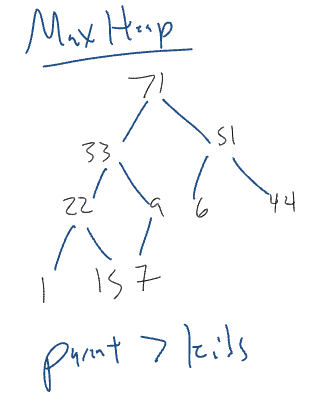 Max Heap
71
33 51
22 9 6 44
1 15 7
parent > kids